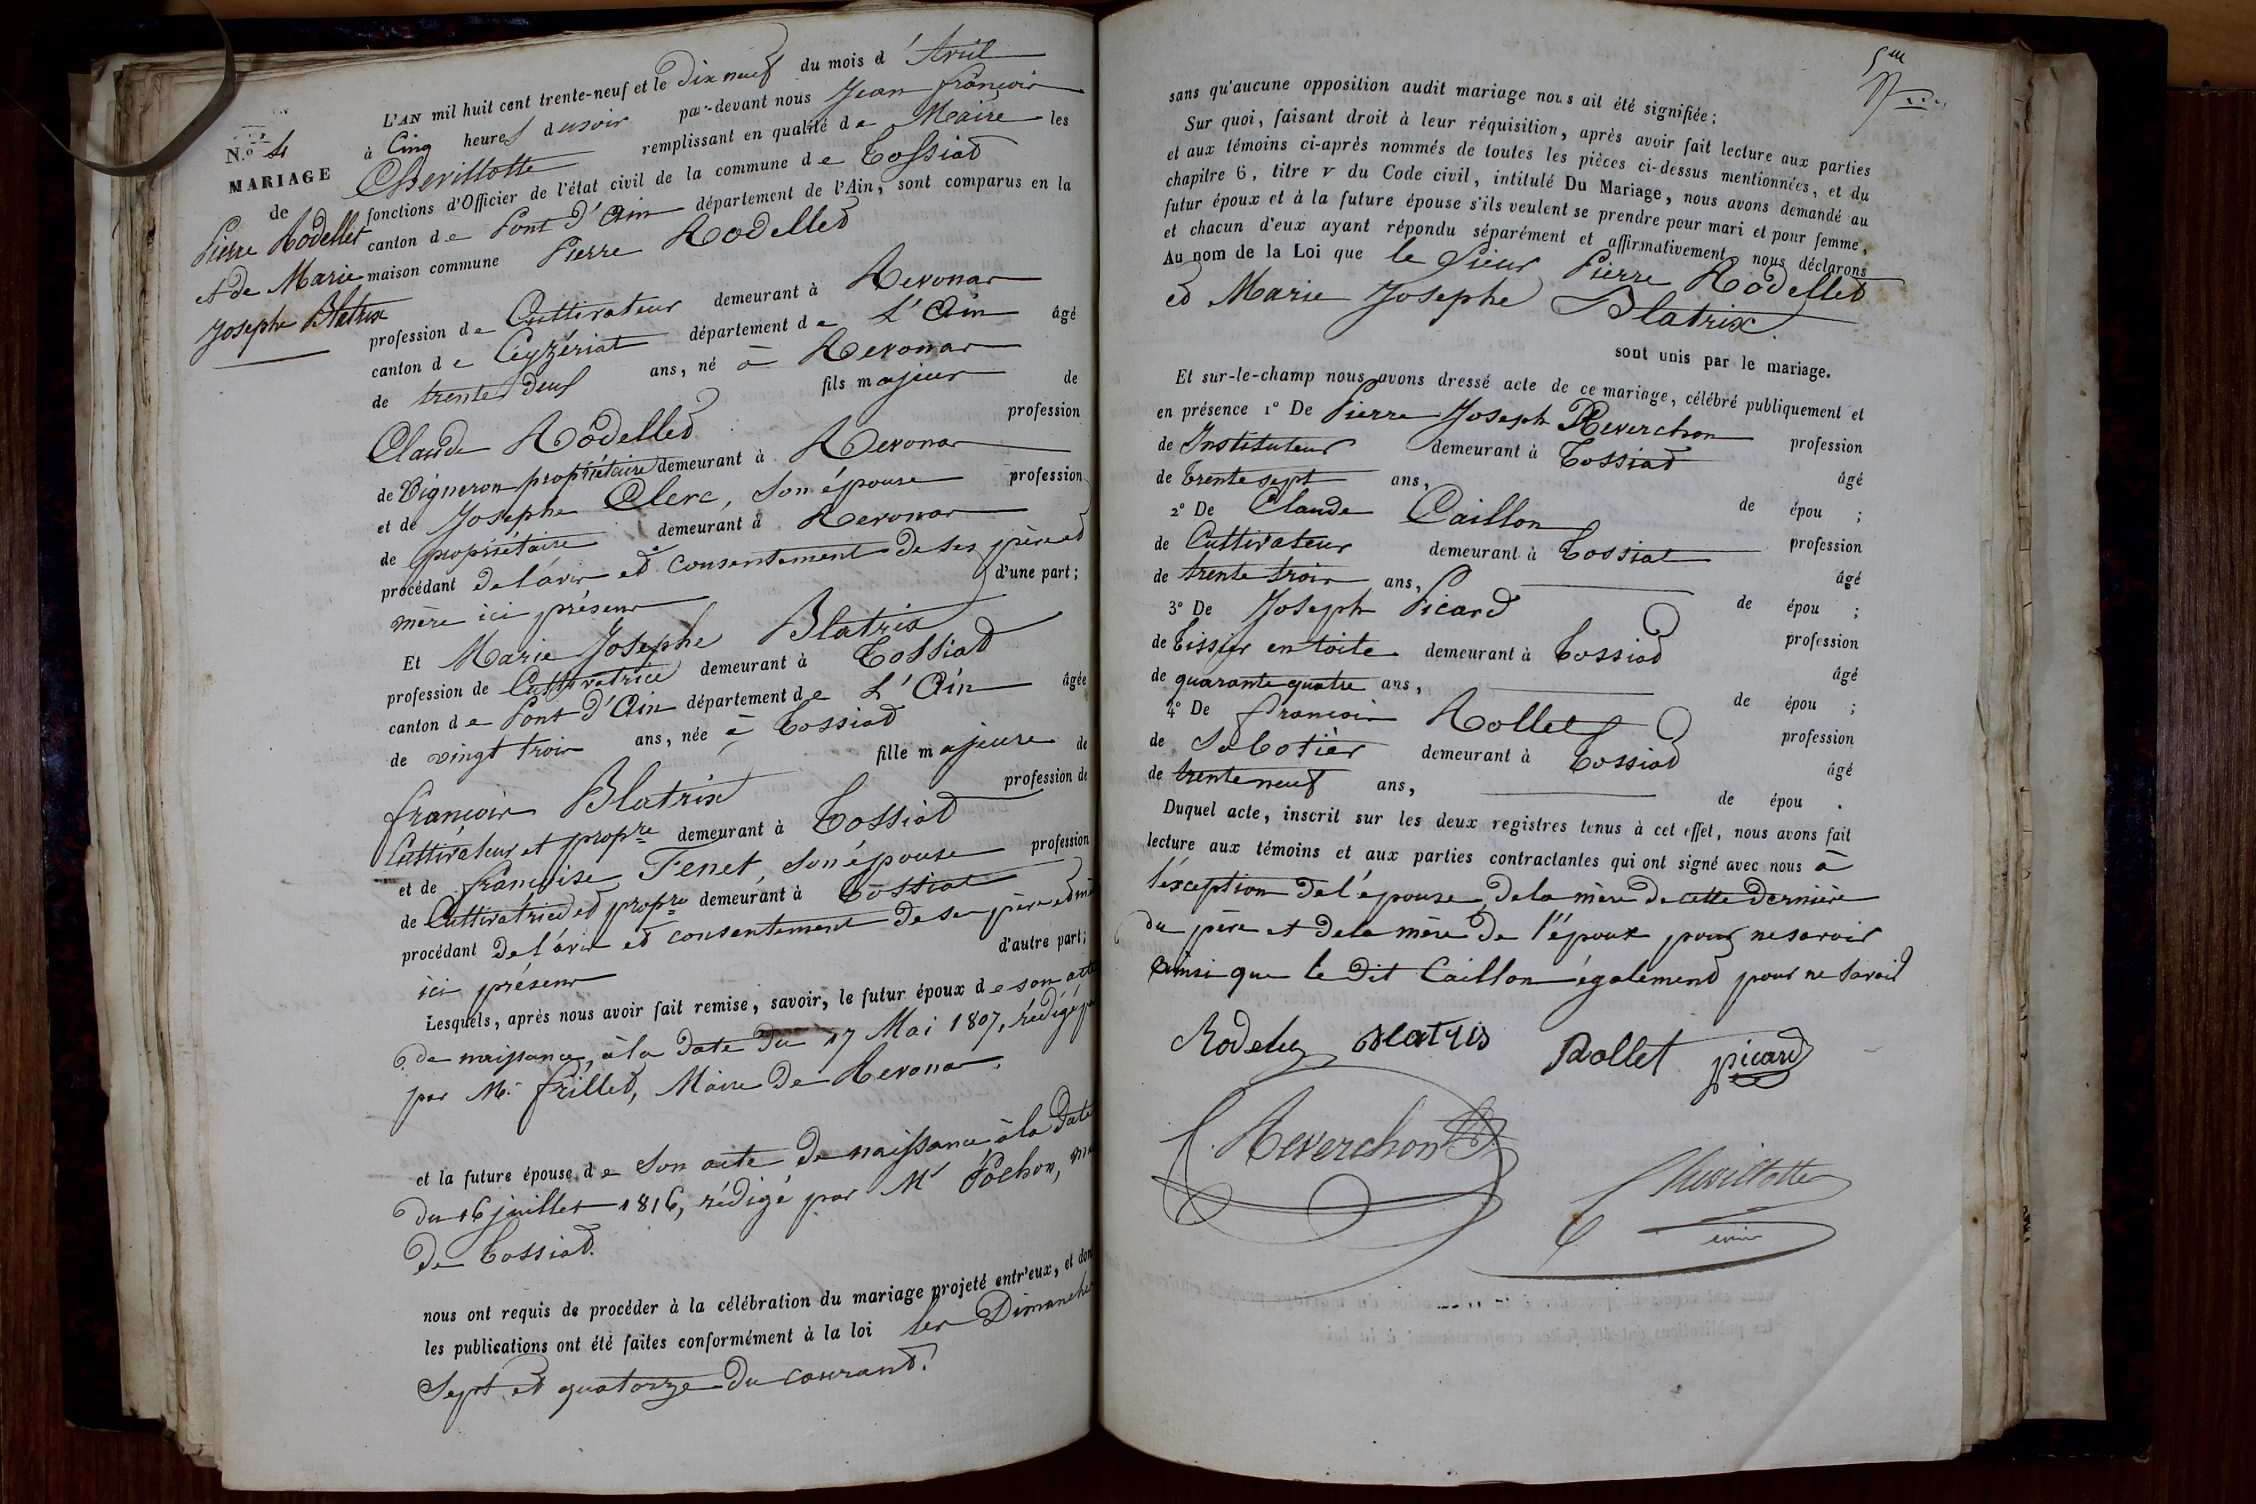 N.º 4
MARIAGE
de
Pierre Rodellet
et de Marie
Josephe Blatrix
L'AN mil huit cent trente-neuf et le dix neuf du mois d'Avril
à Cinq heures du soir par-devant nous Jean françois
Chevillotte remplissant en qualité de Maire les
fonctions d'Officier de l'état civil de la commune de Tossiat
canton de Pont d'Ain département de l'Ain, sont comparus en la
maison commune Pierre Rodellet
profession de Cultivateur demeurant à Revonas
canton de Ceyzériat département de L'Ain âgé
de trente deux ans, né à Revonas
fils majeur de
Claude Rodellet profession
de Vigneron propriétaire demeurant à Revonas
et de Josephe Clerc, son épouse profession
de propriétaire demeurant à Revonas
procédant de l'avis et consentement de ses père et
mère ici présens d'une part;
Et Marie Josephe Blatrix
profession de Cultivatrice demeurant à Tossiat
canton de Pont d'Ain département de L'Ain âgée
de vingt trois ans, née à Tossiat
fille majeure de
françois Blatrix profession de
Cultivateur et propre demeurant à Tossiat
et de françoise Tenet, son épouse profession
de Cultivatrice et propre demeurant à Tossiat
procédant de l'avis et consentement de ses père et mè
ici présens d'autre part;
Lesquels, après nous avoir fait remise, savoir, le futur époux de son acte
de naissance, à la date du 17 Mai 1807, rédigé
par Mr. frillet, Maire de Revonas,
et la future épouse de son acte de naissance à la date
du 16 juillet 1816, rédigé par Mr Pochon,
de Tossiat.
nous ont requis de procéder à la célébration du mariage projeté entr'eux, et dont
les publications ont été faites conformément à la loi les Dimanches
sept et quatorze du courant.
sans qu'aucune opposition audit mariage nous ait été signifiée;
Sur quoi, faisant droit à leur réquisition, après avoir fait lecture aux parties
et aux témoins ci-après nommés de toutes les pièces ci-dessus mentionnées, et du
chapitre 6, titre V du Code civil, intitulé Du Mariage, nous avons demandé au
futur époux et à la future épouse s'ils veulent se prendre pour mari et pour femme,
et chacun d'eux ayant répondu séparément et affirmativement, nous déclarons
Au nom de la Loi que le sieur Pierre Rodellet
et Marie Josephe Blatrix
sont unis par le mariage.
Et sur-le-champ nous avons dressé acte de ce mariage, célébré publiquement et
en présence 1º De Pierre Joseph Reverchon profession
de Instituteur demeurant à Tossiat âgé
de trente sept ans, de épou ;
2º De Claude Caillon profession
de Cultivateur demeurant à Tossiat âgé
de trente trois ans, de épou ;
3º De Joseph Picard profession
de Tissier en toile demeurant à Tossiat âgé
de quarante quatre ans, de épou ;
4º De françois Rollet profession
de Sabotier demeurant à Tossiat âgé
de trente neuf ans, de épou .
Duquel acte, inscrit sur les deux registres tenus à cet effet, nous avons fait
lecture aux témoins et aux parties contractantes qui ont signé avec nous à
l'exception de l'épouse, de la mère de cette dernière
du père et de la mère de l'époux pour ne savoir
ainsi que le dit Caillon également pour ne savoir
Rodelez Blatris Rollet picard
Reverchon
Chevillotte